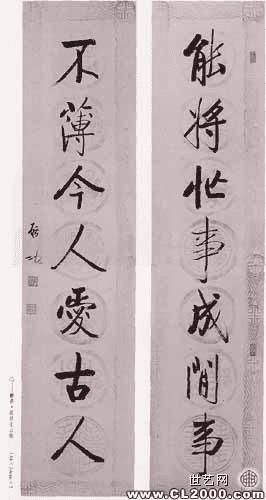 能将忙事成閒事
不薄今人愛古人
啟功
世艺网
www.CL2000.com